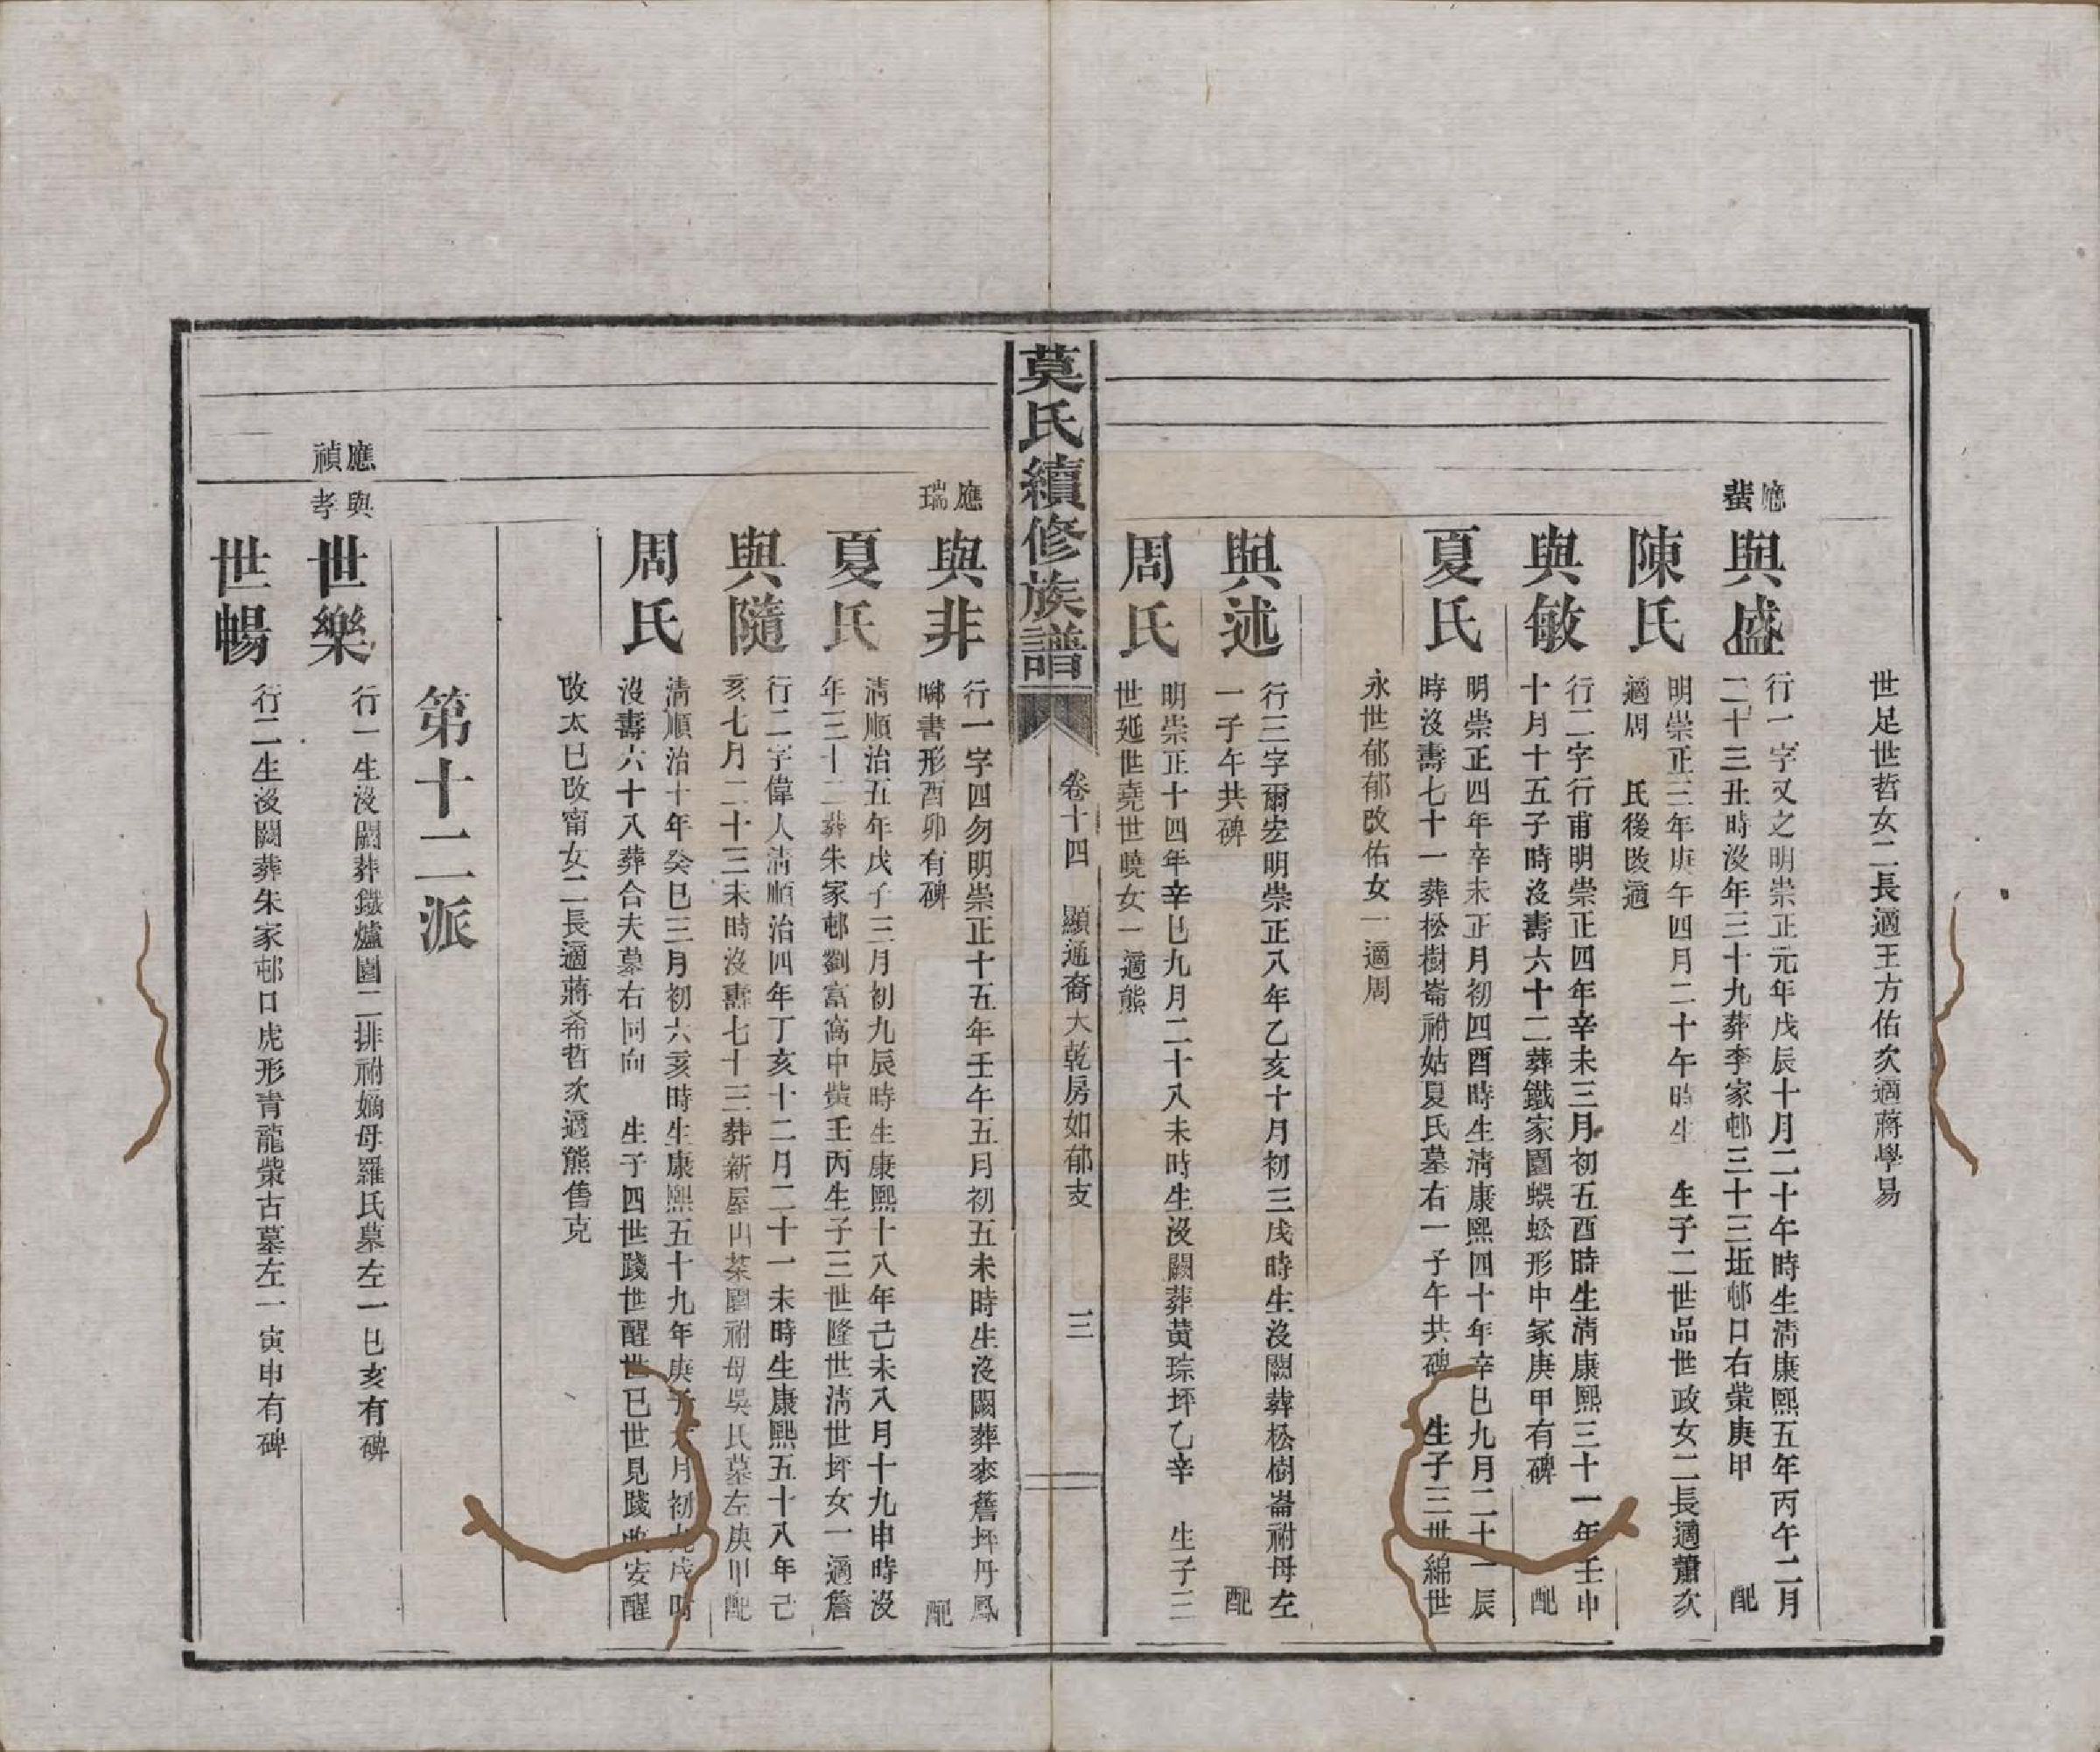 世足世哲女二長適王方佑次適蔣學易
應
蜚
與盛
行一字又之明崇正元年戊辰十月二十午時生清康熙五年丙午二月
二十三丑時沒年三十九葬李家邨三十三坵邨口右柴庚甲 配
陳氏
明崇正三年庚午四月二十午時生 生子二世品世政女二長適蕭次
適周 氏後改適
與敏
行二字行甫明崇正四年辛未三月初五酉時生清康熙三十一年壬申
十月十五子時沒壽六十二葬鐵家園蜈蚣形中冢庚甲有碑 配
夏氏
明崇正四年辛未正月初四酉時生清康熙四十年辛巳九月二十一辰
時沒壽七十一葬松樹崙祔姑夏氏墓右一子午共碑 生子三世綿世
永世郁郁改佑女一適周
與述
行三字爾宏明崇正八年乙亥十月初三戌時生沒闕葬松樹崙祔母左
一子午共碑 配
周氏
明崇正十四年辛巳九月二十八未時生沒闕葬黃琮坪乙辛 生子三
世延世堯世曉女一適熊
莫氏續修族譜
卷十四 顯通裔大乾房如郁支 三
應
瑞
與非
行一字四勿明崇正十五年壬午五月初五未時生沒闕葬麥簷坪丹鳳
啣書形酉卯有碑 配
夏氏
清順治五年戊子三月初九辰時生康熙十八年己未八月十九申時沒
年三十二葬朱家邨劉富窩中柴壬丙生子三世隆世清世坪女一適詹
與隨
行二字偉人清順治四年丁亥十二月二十一未時生康熙五十八年己
亥七月二十三未時沒壽七十三葬新屋山茶園祔母吳氏墓左庚甲配
周氏
清順治十年癸巳三月初六亥時生康熙五十九年庚子 月初九戌時
沒壽六十八葬合夫墓右同向 生子四世踐世醒世巳世見踐改安醒
改太巳改甯女二長適蔣希哲次適熊售克
第十二派
應 與
禎 孝
世樂
行一生沒闕葬鐵爐園二排祔嫡母羅氏墓左一巳亥有碑
世暢
行二生沒闕葬朱家邨口虎形青龍柴古墓左一寅申有碑